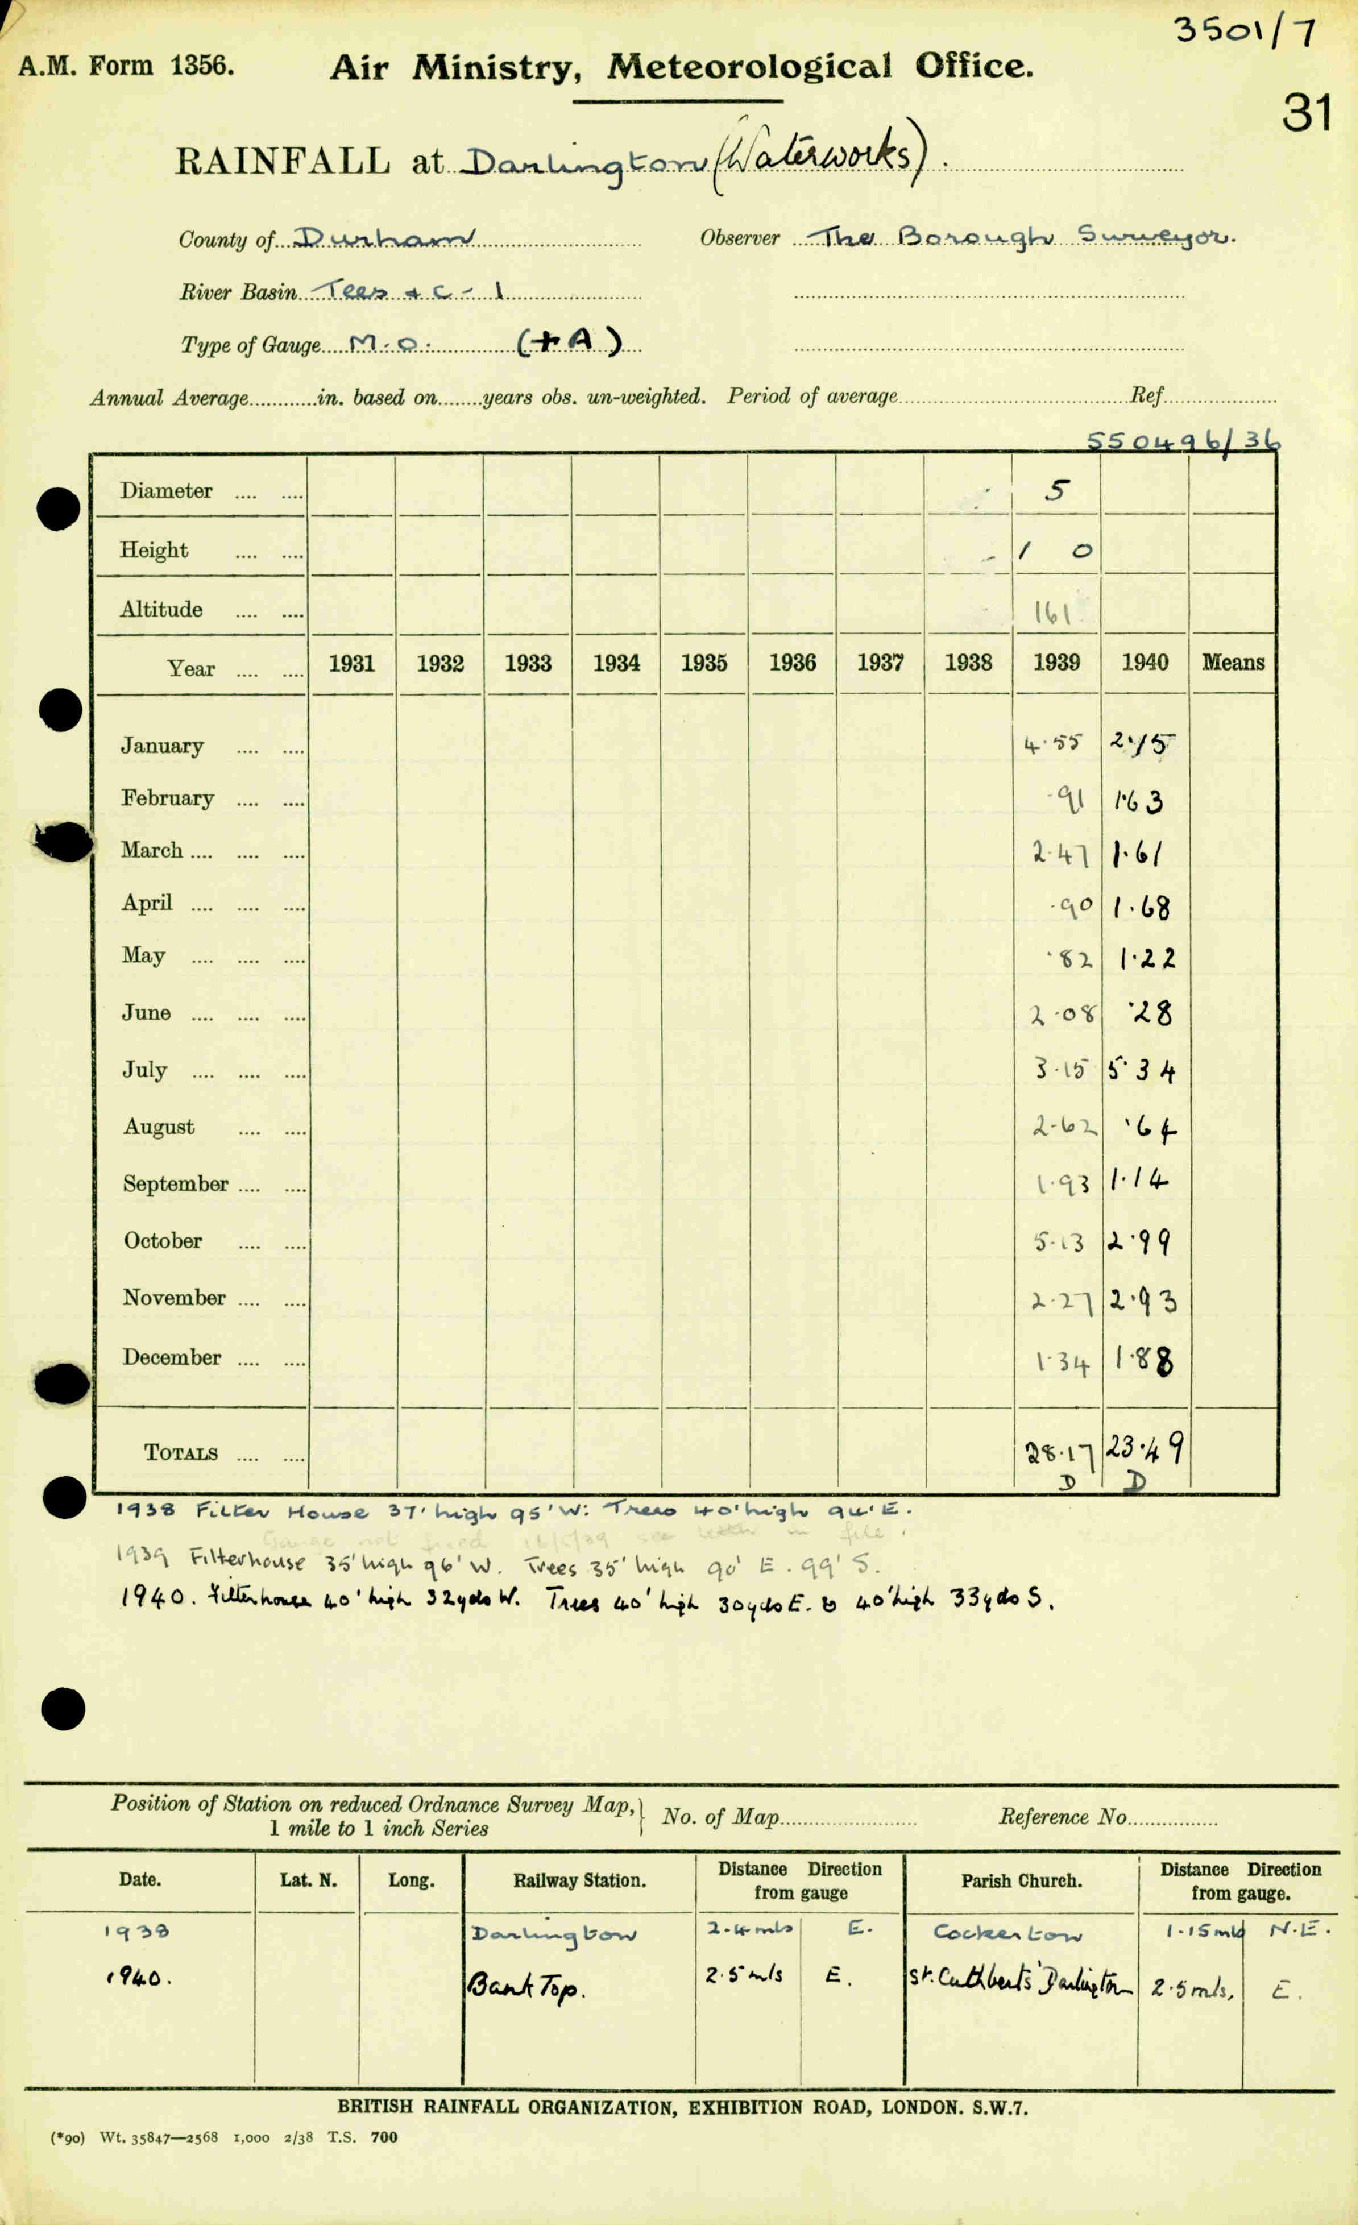 3501/7
A.M. Form 1356. Air Ministry, Meteorological Office.
31
RAINFALL at Darlington (Waterworks).
County of Durham Observer The Borough Surveyor.
River Basin Tees &c - 1
Type of Gauge M.O. (+A)
Annual Average............in. based on........years obs. un-weighted. Period of average............Ref............
550496/36
Diameter .... .... 5
Height .... .... 1 0
Altitude .... .... 161
Year .... .... 1931 1932 1933 1934 1935 1936 1937 1938 1939 1940 Means
January .... .... 4.55 2.15
February .... .... .91 1.63
March .... .... .... 2.47 1.61
April .... .... .... .90 1.68
May .... .... .... .82 1.22
June .... .... .... 2.08 .28
July .... .... .... 3.15 5.34
August .... .... 2.62 .64
September .... .... 1.93 1.14
October .... .... 5.13 2.99
November .... .... 2.27 2.93
December .... .... 1.34 1.88
TOTALS .... .... 28.17 23.49
D D
1938 Filter House 37' high 95' W: Trees 40' high 94' E.
Gauge not fixed 16/5/39 see letter in file.
1939 Filterhouse 35' high 96' W. Trees 35' high 90' E. 99' S.
1940. Filterhouse 40' high 32yds W. Trees 40' high 30yds E. & 40' high 33yds S.
Position of Station on reduced Ordnance Survey Map, } No. of Map............ Reference No............
1 mile to 1 inch Series
Date. Lat. N. Long. Railway Station. Distance Direction from gauge Parish Church. Distance Direction from gauge.
1938 Darlington 2.4 mls E. Cockerton 1.15 mls N.E.
1940. Bank Top. 2.5 mls E. St. Cuthberts Darlington 2.5 mls, E.
BRITISH RAINFALL ORGANIZATION, EXHIBITION ROAD, LONDON. S.W.7.
(*90) Wt. 35847—2568 1,000 2/38 T.S. 700